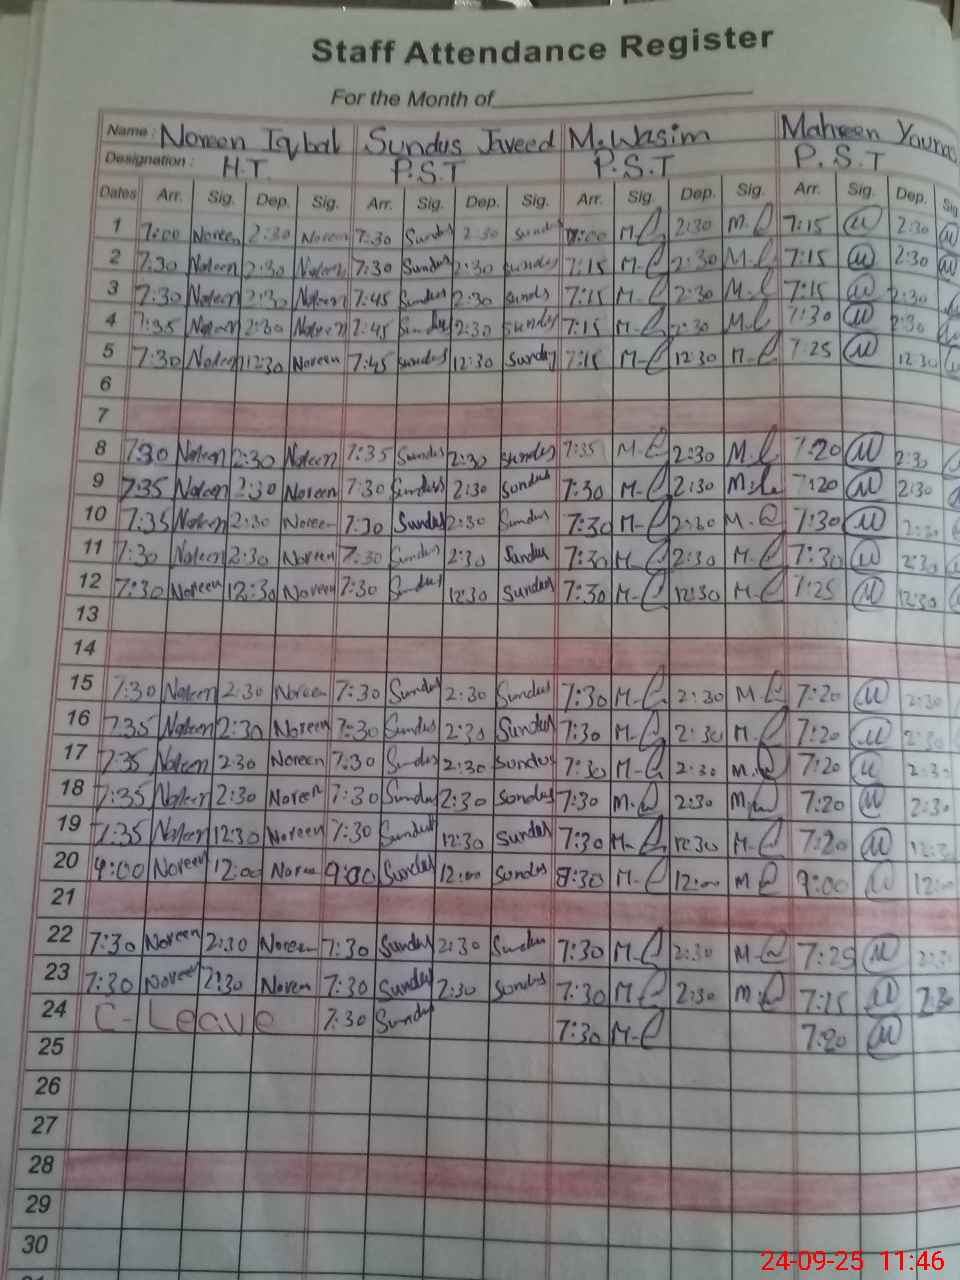 Staff Attendance Register
For the Month of
Name : Noreen Iqbal Sundus Javeed M. Wasim Mahreen Younas
Designation : H.T. P.S.T P.S.T P.S.T
Dates Arr. Sig. Dep. Sig. Arr. Sig. Dep. Sig. Arr. Sig. Dep. Sig. Arr. Sig. Dep. Sig
1 7:00 Noreen 2:30 Noreen 7:30 Sundus 2:30 Sundus 2:30 7:15 2:30
2 7:30 Noreen 2:30 Noreen 7:30 Sundus 2:30 Sundus 7:15 2:30 7:15 2:30
3 7:30 Noreen 2:30 Noreen 7:45 Sundus 2:30 Sundus 7:15 2:30 7:15 2:30
4 7:35 Noreen 2:30 Noreen 7:45 Sundus 2:30 Sundus 7:15 2:30 7:30 2:30
5 7:30 Noreen 12:30 Noreen 7:45 Sundus 12:30 Sundus 7:15 12:30 7:25 12:30
6
7
8 7:30 Noreen 2:30 Noreen 7:35 Sundus 2:30 Sundus 7:35 2:30 7:20 2:30
9 7:35 Noreen 2:30 Noreen 7:30 Sundus 2:30 Sundus 7:30 2:30 7:20 2:30
10 7:35 Noreen 2:30 Noreen 7:30 Sundus 2:30 Sundus 7:30 2:30 7:30 2:30
11 7:30 Noreen 2:30 Noreen 7:30 Sundus 2:30 Sundus 7:30 2:30 7:30 2:30
12 7:30 Noreen 12:30 Noreen 7:30 Sundus 12:30 Sundus 7:30 12:30 7:25 12:30
13
14
15 7:30 Noreen 2:30 Noreen 7:30 Sundus 2:30 Sundus 7:30 2:30 7:20 2:30
16 7:35 Noreen 2:30 Noreen 7:30 Sundus 2:30 Sundus 7:30 2:30 7:20 2:30
17 7:35 Noreen 2:30 Noreen 7:30 Sundus 2:30 Sundus 7:30 2:30 7:20 2:30
18 7:35 Noreen 2:30 Noreen 7:30 Sundus 2:30 Sundus 7:30 2:30 7:20 2:30
19 7:35 Noreen 12:30 Noreen 7:30 Sundus 12:30 Sundus 7:30 12:30 7:20 12:30
20 9:00 Noreen 12:00 Noreen 9:00 Sundus 12:00 Sundus 8:30 12:00 9:00 12:00
21
22 7:30 Noreen 2:30 Noreen 7:30 Sundus 2:30 Sundus 7:30 2:30 7:25 2:30
23 7:30 Noreen 2:30 Noreen 7:30 Sundus 2:30 Sundus 7:30 2:30 7:15 2:30
24 C-Leave 7:30 Sundus 7:30 7:20
25
26
27
28
29
30
24-09-25 11:46